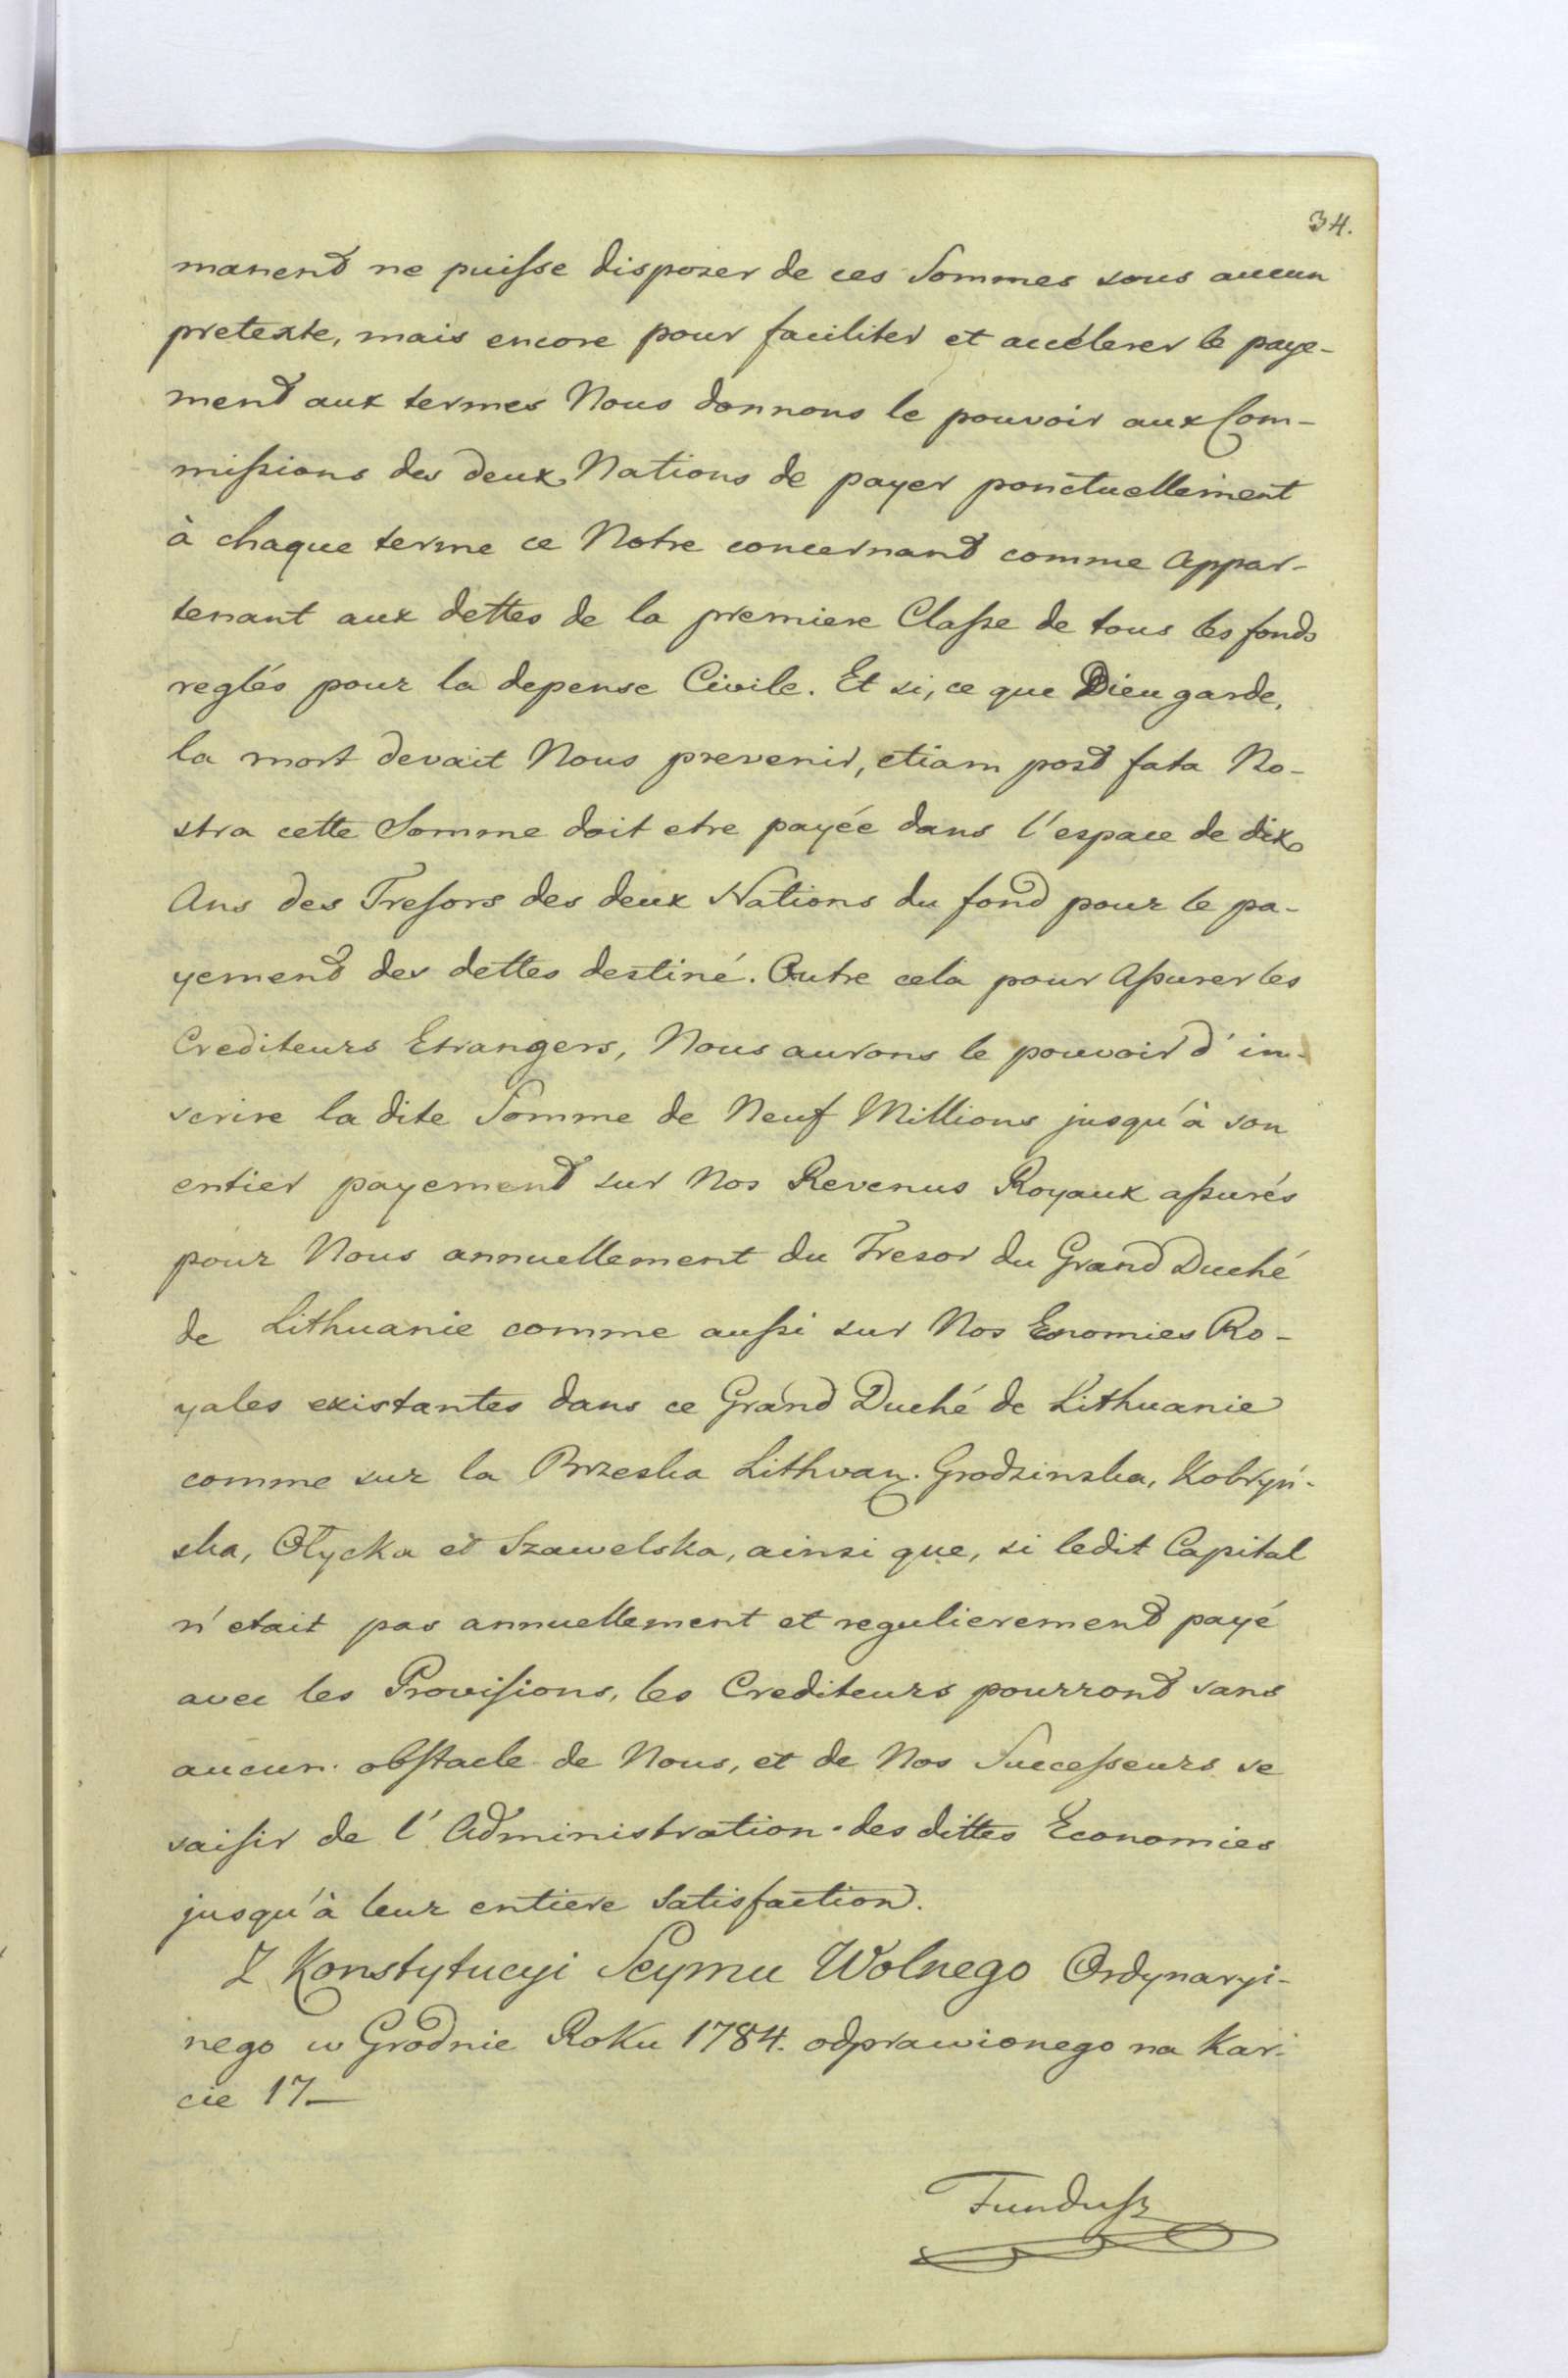 34.
manent ne puisse disposer de ces Sommes sous aucun
pretexte, mais encore pour faciliter et accélerer le paye-
ment aux termes Nous donnons le pouvoir aux Com-
missions des deux Nations de payer ponctuellement
à chaque terme ce Notre concernant comme Appar-
tenant aux dettes de la premiere Classe de tous les fonds
reglés pour la depense Civile. Et si, ce que Dieu garde,
la mort devait Nous prevenir, etiam post fata No-
stra cette Somme doit etre payée dans l'espace de dix
Ans des Tresors des deux Nations du fond pour le pa-
yement des dettes destiné. Outre cela pour Assurer les
Crediteurs Etrangers, Nous aurons le pouvoir d'in-
scrire la dite Somme de Neuf Millions jusqu'à son
entier payement sur Nos Revenus Royaux assurés
pour Nous annuellement du Tresor du Grand Duché
de Lithuanie comme aussi sur Nos Enomies Ro-
yales existantes dans ce Grand Duché de Lithuanie
comme sur la Brzeska Lithvan. Grodzinska, Kobryń-
ska, Olycka et Szawelska, ainsi que, si ledit Capital
n'etait pas annuellement et regulierement payé
avec les Provisions, les Crediteurs pourront sans
aucun obstacle de Nous, et de Nos Successeurs se
saisir de l'Administration des dittes Economies
jusqu'à leur entiere Satisfaction.
Z Konstytucyi Seymu Wolnego Ordynaryi-
nego w Grodnie Roku 1784. odprawionego na Kar-
cie 17_
Fundusz